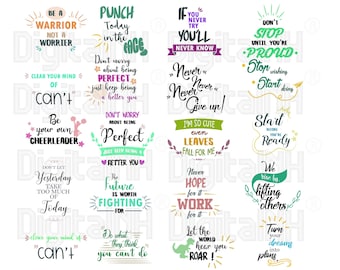 BE A
WARRIOR
NOT A
WORRIER
PUNCH
Today
in the
FACE
IF YOU
NEVER
TRY
YOU'LL
NEVER KNOW
DON'T
STOP
UNTIL YOU'RE
PROUD
CLEAR YOUR MIND
OF
"can't"
Don't worry
about being
PERFECT
just keep being
a better you
Never
Never
Never
Give up!
Stop
wishing
Start
doing
Be
your own
CHEERLEADER
DON'T WORRY
ABOUT BEING
Perfect
JUST KEEP BEING A
BETTER YOU
I'M SO CUTE
even
LEAVES
FALL FOR ME
Start
before
You're
Ready
DON'T LET
Yesterday
TAKE TOO
MUCH OF
Today
The
Future
IS WORTH
FIGHTING
FOR
Never
HOPE
for it
WORK
for it
We
Rise by
lifting
others
clear your mind of
"can't"
Do what
They think
you can't do
Let the
WORLD
hear you
ROAR!
Turn
your
dreams
into
plans